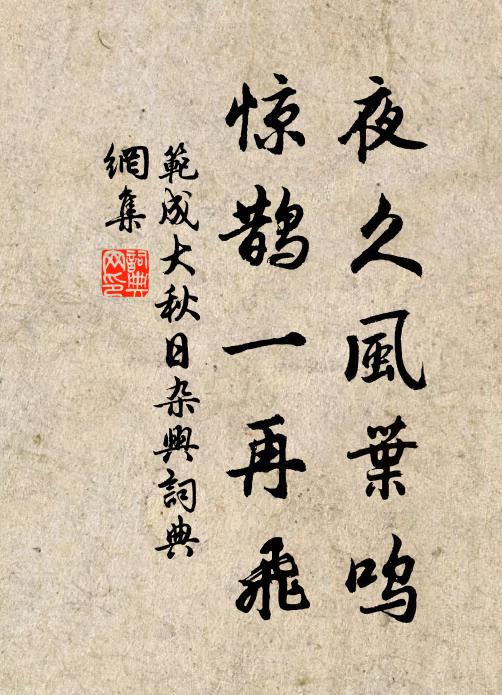 夜久風葉鸣
惊鹊一再飛
範成大秋日杂興詞典
網集
詞典
网印